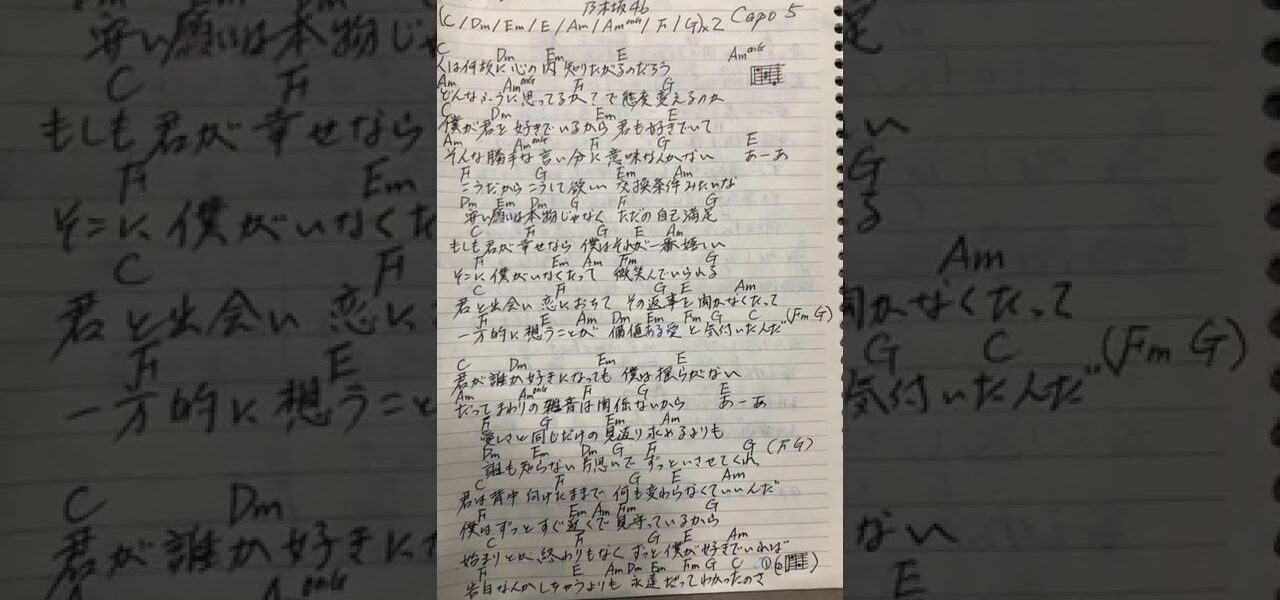 乃木坂46
(C / Dm / Em / E / Am / AmonG / F / G)×2 Capo 5
C Dm Em E AmonG
人は何故に心の内 知りたがるのだろう
Am AmonG F G
どんなふうに思ってるかで態度変えるのか
C Dm Em E
僕が君を好きでいるから 君も好きでいて
Am AmonG F G E
そんな勝手な言い分に意味なんかない あーあ
F G Em Am
こうだからこうして欲しい 交換条件みたいな
Dm Em Dm G F G
安い願いは本物じゃなく ただの自己満足
C F G E Am
もしも君が幸せなら 僕はそれが一番嬉しい
F Em Am Fm G
そこに僕がいなくたって 微笑んでいられる
C F G E Am
君と出会い 恋におちて その返事を聞かなくたって
F E Am Dm Em Fm G C (Fm G)
一方的に想うことが 価値ある愛と気付いたんだ
C Dm Em E
君が誰か好きになっても 僕は揺らがない
Am AmonG F G E
だってまわりの雑音は関係ないから あーあ
F G Em Am
愛しさと同じだけの見返り求めるよりも
Dm Em Dm G F G (F G)
誰も知らない片思いで ずっといさせてくれ
C F G E Am
君は背中向けたままで 何も変わらなくていいんだ
F Em Am Fm G
僕はずっとすぐ近くで見守っているから
C F G E Am
始まりとか終わりもなく ずっと僕が好きでいれば
F E Am Dm Em Fm G C
告白なんかしちゃうよりも 永遠だってわかったのさ